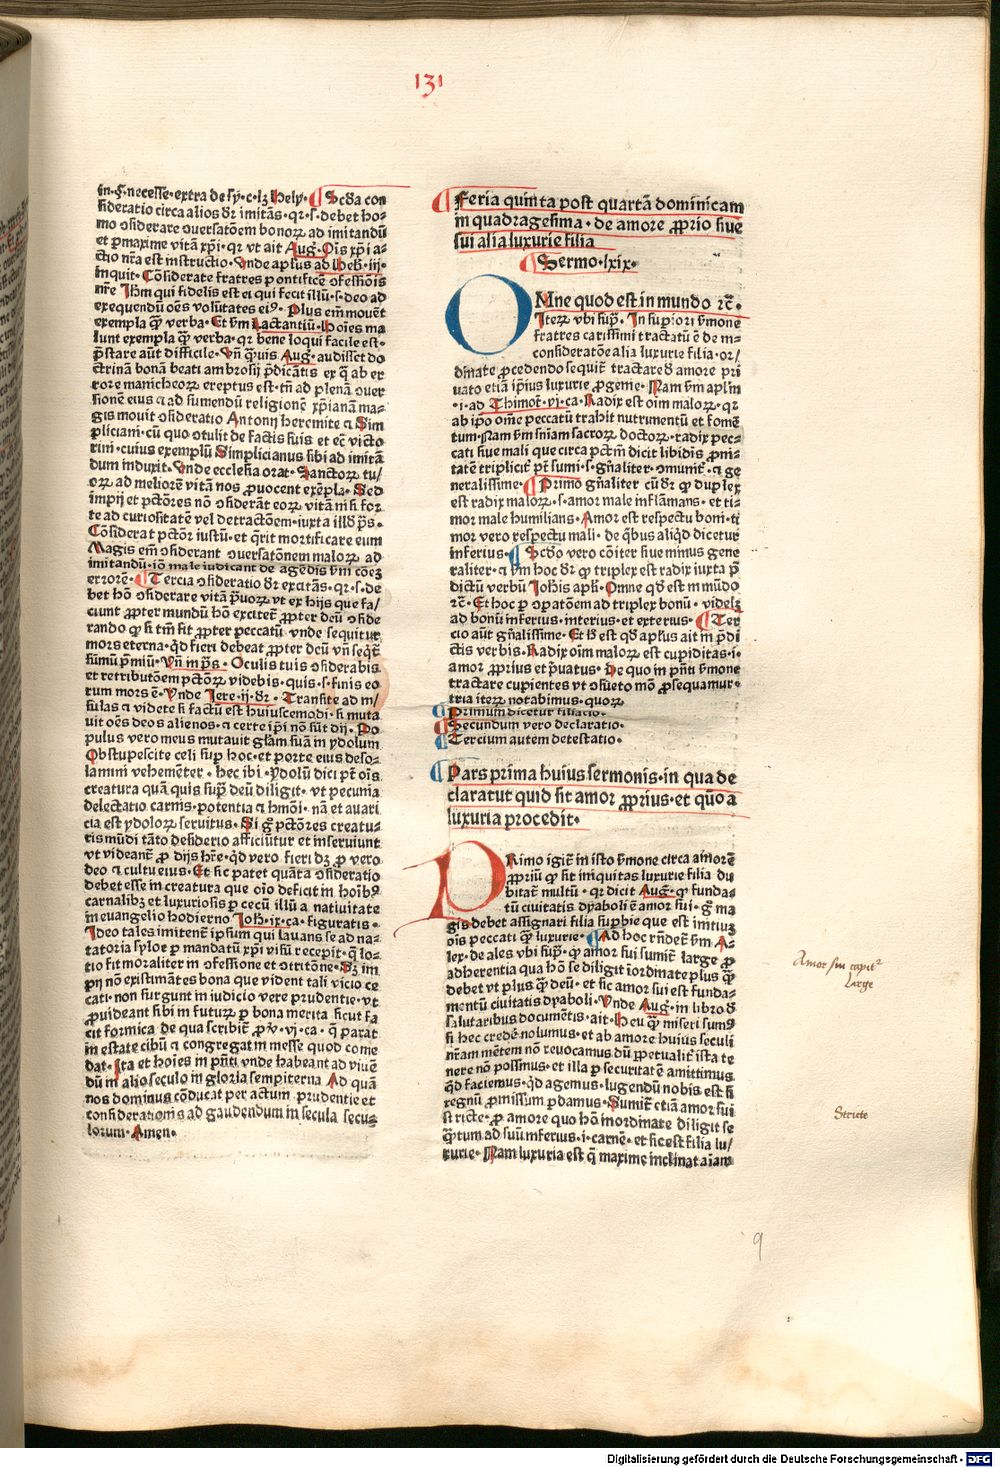 131
in·§·necesse·extra de sy·c·lꝫ hely· ¶ Scďa con
sideratio circa alios ďr imitãs·qꝛ·s·debet ho-
mo ↄsiderare ↄuersatõem bonoꝝ ad imitandũ
et ꝑmaxime vitã xp̃i·qꝛ vt ait Aug·Oĩs xp̃i a-
ctio nr̃a est instructio·Vnde ap̃lus ad Heb·iij·
inquit·Cõsiderate fratres pontificẽ ↄfessiõis
nr̃e Ihm̃ qui fidelis est ei qui fecit illũ·s·deo ad
exequendũ oẽs volũtates eiꝰ·Plus em̃ mouẽt
exempla q̃ȝ verba·Et ẜm Lactantiũ·Hoĩes ma
lunt exempla q̃ȝ verba·qꝛ bene loqui facile est·
p̃stare aũt difficile·Vñ q̃uis Aug·audisset do
ctrinã bonã beati ambrosij p̃dicãtis ex q̃ ab er
rore manicheoꝝ ereptus est·tñ ad plenã ↄuer
sionẽ eius ⁊ ad sumendũ religionẽ xp̃ianã ma-
gis mouit ↄsideratio Antonij heremite ⁊ Sim
pliciani·cũ quo ↄtulit de factis suis et ec̃ victo
rini·cuius exemplũ Simplicianus sibi ad imitã
dum induxit·Vnde ecclesia orat·Sanctoꝝ tu/
oꝝ ad meliorẽ vitã nos ꝓuocent exẽpla·Sed
impij et pctõres nõ ↄsiderãt eoꝝ vitã nisi for-
te ad curiositatẽ vel detractõem·iuxta illďp̃s·
Cõsiderat pctõr iustũ·et q̃rit mortificare eum
Magis em̃ ↄsiderant ↄuersatõnem maloꝝ ad
imitandũ·iõ male iudicant de agẽdis ẜm cõeȝ
errorẽ· ¶ Tercia ↄsideratio ďr excitãs·qꝛ·s·de
bet hõ ↄsiderare vitã p̃uoꝝ vt ex hijs que fa/
ciunt ꝓpter mundũ hõ excitet̃ ꝓpter deũ ↄside
rando ꝙ si tm̃ fit ꝓpter peccatũ vnde sequitur
mors eterna·qď fieri debeat ꝓpter deũ vñ seq̃t̃
sũmũ p̃miũ·Vñ in p̃s·Oculis tuis ↄsiderabis
et retributõem pctõꝝ videbis·quis·s·finis eo
rum mors ẽ·Vnde Iere·ij·ďr·Transite ad in/
sulas ⁊ videte si factũ est huiuscemodi·si muta
uit oẽs deos alienos·⁊ certe ip̃i nõ sũt dij·Po
pulus vero meus mutauit gl̃am suã in ydolum
Obstupescite celi suꝑ hoc·et porte eius deso-
lamini vehemẽter·hec ibi·Ydolũ dici pt̃ oĩs
creatura quã quis suꝑ deũ diligit·vt pecunia
delectatio carnis·potentia ⁊ hmõi·nã et auari
cia est ydoloꝝ seruitus·Si g̃ pctõres creatu-
ris mũdi tãto desiderio afficiũtur et inseruiunt
vt videant̃ ꝓ dijs hr̃e·qď vero fieri dȝ ꝓ vero
deo ⁊ cultu eius·Et sic patet quãta ↄsideratio
debet esse in creatura que oĩo deficit in hoĩbꝰ
carnalibȝ et luxuriosis ꝑ cecũ illũ a natiuitate
in euangelio hodierno Ioh·ix·ca·figuratis·
Ideo tales imitent̃ ip̃sum qui lauans se ad na-
tatoria syloe ꝑ mandatũ xp̃i visũ recepit·q̃ lo-
tio fit moraliter in ↄfessione et ↄtritõne·Sȝ im
pij nõ existimãtes bona que vident tali vicio ce
cati·non surgunt in iudicio vere prudentie·vt
ꝓuideant sibi in futuꝝ ꝑ bona merita sicut fa
cit formica de qua scribit̃ ꝓꝰ·vj·ca·q̃ parat
in estate cibũ ⁊ congregat in messe quod come
dat·Ita et hoĩes in pñti vnde habeant ad viuẽ
dũ in alio seculo in gloria sempiterna Ad quã
nos dominus cõducat per actum prudentie et
considerationis ad gaudendum in secula secu-
lorum·Amen·
¶ Feria quinta post quartã dominicam
in quadragesima·de amore ꝓprio siue
sui alia luxurie filia
¶ Sermo·lxix·
OMne quod est in mundo ⁊c̃·
Iteꝝ vbi suꝑ·In suꝑiori ẜmone
fratres carissimi tractatũ ẽ de in-
consideratõe alia luxurie filia·or/
dinate ꝓcedendo sequit̃ tractare de amore pri
uato etiã ip̃ius luxurie ꝓgenie·Nam ẜm ap̃lm
·i·ad Thimot̃·vj·ca·Radix est oĩm maloꝝ·qꝛ
ab ip̃o om̃e peccatũ trahit nutrimentũ et fomẽ
tum·Nam ẜm sñiam sacroꝝ doctoꝝ·radix pec-
cati siue mali que circa pctm̃ dicit libidis ꝓni-
tatẽ triplicit̃ pt̃ sumi·s·gñaliter·ↄmunit̃·⁊ ge
neralissime· ¶ Primo gñaliter cũ ďr ꝙ duplex
est radix maloꝝ·s·amor male inflãmans·et ti-
mor male humilians·Amor est respectu boni·ti
mor vero respectu mali·de q̃bus aliqď dicetur
inferius· ¶ Scďo vero cõiter siue minus gene
raliter·⁊ ẜm hoc ďr ꝙ triplex est radix iuxta p̃
dictũ verbũ Iohis apl̃i·Omne qď est in mũdo
⁊c̃·Et hoc ꝑ ↄpatõem ad triplex bonũ·videlȝ
ad bonũ inferius·interius·et exterius· ¶ Ter
cio aũt gñalissime·Et ß est qď ap̃lus ait in p̃di
ctis verbis·Radix oĩm maloꝝ est cupiditas·i·
amor ꝓprius et p̃uatus·De quo in pñti ẜmone
tractare cupientes vt ↄsueto mõ ꝓsequamur·
tria iteꝝ notabimus·quoꝝ
¶ Primum dicetur filiacio·
¶ Secundum vero declaratio·
¶ Tercium autem detestatio·
¶ Pars prima huius sermonis·in qua de
claratur quid sit amor ꝓprius·et quõ a
luxuria procedit·
PRimo igit̃ in isto ẜmone circa amorẽ
ꝓpriũ ꝙ sit iniquitas luxurie filia du
bitat̃ multũ·qꝛ dicit Aug·ꝙ funda-
tũ ciuitatis dyaboli ẽ amor sui·g̃ ma
gis debet assignari filia suꝑbie que est initiuȝ
oĩs peccati q̃ȝ luxurie· ¶ Ad hoc rñdet̃ ẜm A-
lex·de ales vbi suꝑ·ꝙ amor sui sumit̃ large ꝓ
adherentia qua hõ se diligit iordinate plus q̃ȝ
debet vt plus q̃ȝ deũ·et sic amor sui est funda-
mentũ ciuitatis dyaboli·Vnde Aug·in libro de
salutaribus documẽtis·ait·Heu q̃ȝ miseri sumꝰ
si hec credẽ nolumus·et ab amore huius seculi
nr̃am mẽtem nõ reuocamus dũ ꝑpetualit̃ ista te
nere nõ possimus·et illa ꝑ securitatẽ amittimus
qď faciemus·qď agemus·lugendũ nobis est si
regnũ ꝓmissum ꝑdamus·Sumit̃ etiã amor sui
stricte·ꝓ amore quo hõ inordinate diligit se
q̃ȝtum ad suũ inferius·i·carnẽ·et sic est filia lu/
xurie·Nam luxuria est q̃ maxime inclinat aĩam
Amor sui capit̃
Large
Stricte
9
Digitalisierung gefördert durch die Deutsche Forschungsgemeinschaft - DFG